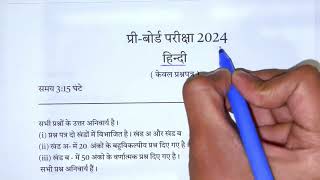 प्री-बोर्ड परीक्षा 2024
हिन्दी
( केवल प्रश्नपत्र )
समय 3:15 घंटे
सभी प्रश्नों के उत्तर अनिवार्य है ।
(i) प्रश्न पत्र दो खंडों में विभाजित है । खंड अ और खंड ब
(ii) खंड अ- में 20 अंको के बहुविकल्पीय प्रश्न दिए गए है
(iii) खंड ब - में 50 अंको के वर्णात्मक प्रश्न दिए गए है ।
सभी प्रश्न अनिवार्य हैं ।